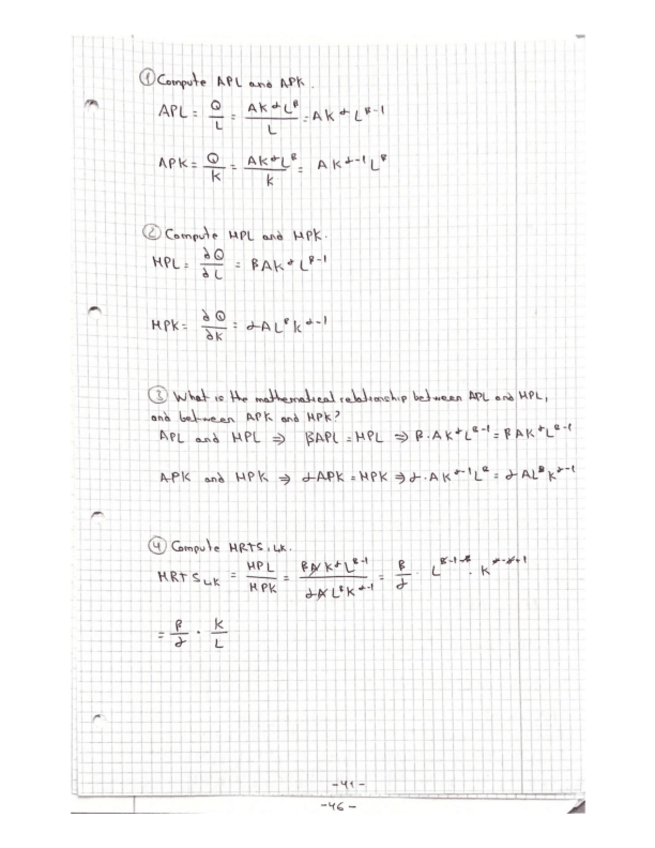 ① Compute APL and APK.
APL = Q/L = AK^αL^β/L = AK^αL^β-1
APK = Q/K = AK^αL^β/K = AK^α-1L^β
② Compute MPL and MPK.
MPL = ∂Q/∂L = βAK^αL^β-1
MPK = ∂Q/∂K = αAL^βK^α-1
③ What is the mathematical relationship between APL and MPL,
and between APK and MPK?
APL and MPL ⇒ βAPL = MPL ⇒ β·AK^αL^β-1 = βAK^αL^β-1
APK and MPK ⇒ αAPK = MPK ⇒ α·AK^α-1L^β = αAL^βK^α-1
④ Compute MRTS, LK.
MRTS_LK = MPL/MPK = βAK^αL^β-1/αAL^βK^α-1 = β/α · L^β-1-β · K^α-α+1
= β/α · K/L
-41-
-46-